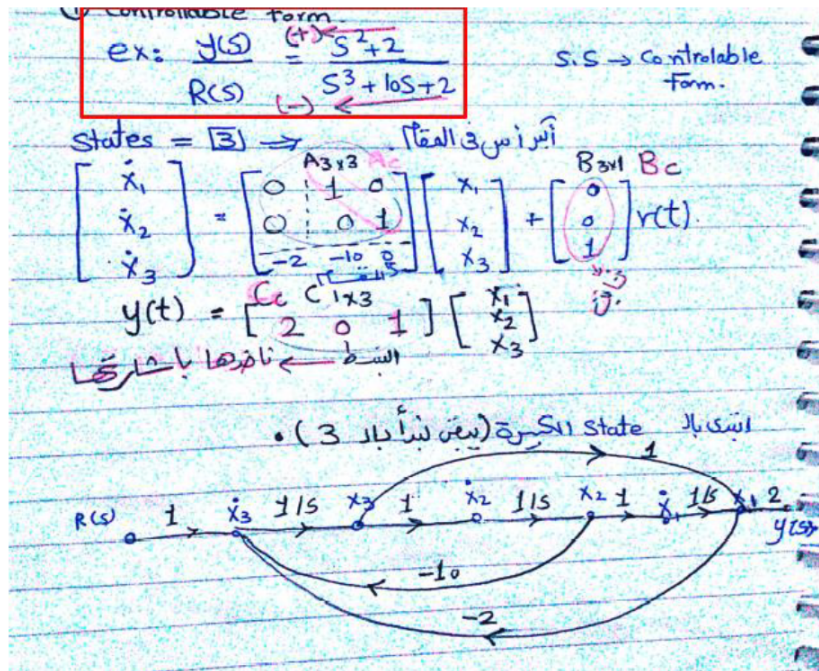 ① Controllable Form.
ex: y(s)/R(s) (+) = (-) S²+2 / S³+10S+2
S.S → Controlable Form.
States = 3 ⇒ أكبر أس في المقام
A3x3 Ac B3x1 Bc
[ẋ1 ẋ2 ẋ3] = [0 1 0 0 0 1 -2 -10 0] [x1 x2 x3] + [0 0 1] r(t).
Cc C1x3
y(t) = [2 0 1] [x1 x2 x3]
البسط ← ناخدها باشارتها
ابتدى بالـ State الكبيرة (يبقى نبدأ بالـ 3).
1
R(s) 1 ẋ3 1/s x3 1 ẋ2 1/s x2 1 ẋ1 1/s x1 2 y(s)
-10
-2